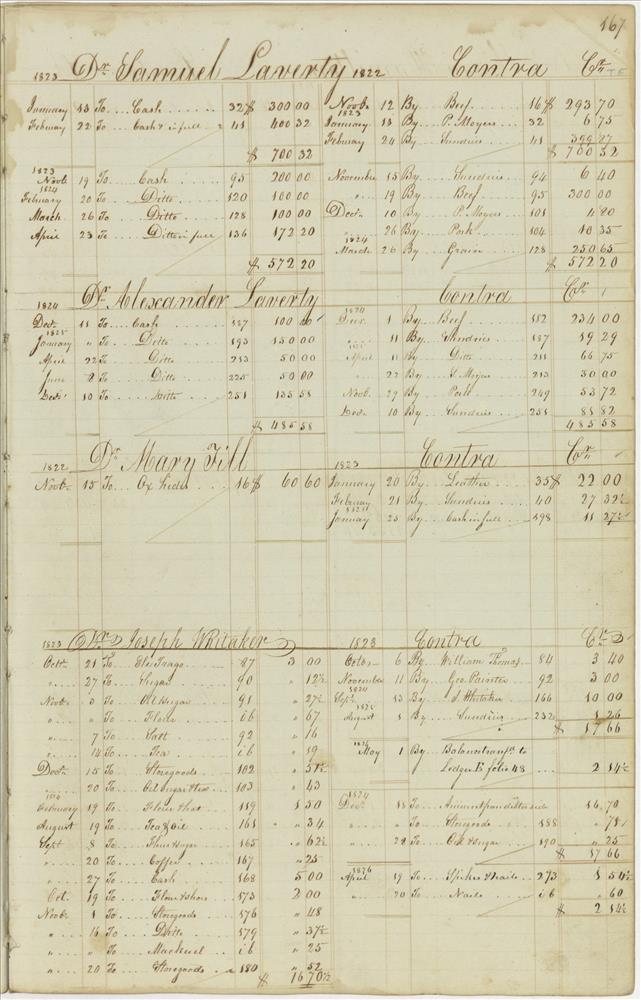 167
1823 Dr Samuel Laverty 1822 Contra Cr
January 13 To Cash 32 $ 300 00 Novbr 12 By Beef 16 $ 293 70
1823
February 22 To Cash in full 41 400 32 January 13 By P. Moyers 32 6 75
February 24 By Sundries 41 399 87
$ 700 32 $ 700 32
1823
Novbr 19 To Cash 95 200 00 November 15 By Sundries 94 6 40
1824
February 20 To Ditto 120 100 00 " 19 By Beef 95 300 00
March 26 To Ditto 128 100 00 Decbr 10 By P. Moyers 101 4 80
April 23 To Ditto in full 136 172 20 " 26 By Pork 104 10 35
1824
March 26 By Grain 128 250 65
$ 572 20 $ 572 20
1824 Dr Alexander Laverty Contra Cr
Decbr 11 To Cash 187 100 00 1 By Beef 182 234 00
1825
January " To Ditto 193 150 00 " 11 By Sundries 187 19 29
April 22 To Ditto 213 50 00 April 11 By Ditto 211 66 75
June 8 To Ditto 225 50 00 " 22 By 213 30 00
Decbr 10 To Ditto 251 135 58 Novbr 29 By Pork 249 53 72
Decbr 10 By Sundries 251 81 82
$ 485 58 485 58
1822 Dr Mary Till 1823 Contra Cr
Novbr 15 To Ox hides 16 $ 60 60 January 20 By Leather 35 $ 22 00
February 21 By Sundries 40 27 32½
January 25 By Cash in full 198 11 27½
1823 Dr Joseph Whitaker 1823 Contra Cr
Octbr 21 To 87 3 00 Octbr 6 By William Thomas 84 3 40
" 27 To Sugar 90 " 12½ November 11 By Geo Painter 92 3 00
1824
Novbr 3 To Oil & Sugar 91 " 27½ Septr 13 By J Whitaker 166 10 00
1825
" " To Flour ib " 67 August 1 By Sundries 232 1 26
" 7 To Salt 92 " 16 $ 17 66
" 14 To Tea ib " 19 May 1 By Balance transfd to
Decbr 15 To Storegoods 102 " 51½ Ledger E folio 48 2 14½
" 20 To Oil Sugar & Tea 103 " 43
1824 1824
February 19 To Flour & hat 119 1 50 Decbr 18 To Amount pr an ditto side 16 70
August 19 To Tea & Oil 161 " 34 " " To Storegoods 188 " 71
Sept 8 To Flour & sugar 165 " 62½ " 28 To Oil & Sugar 190 " 25
" 20 To Coffee 167 " 25 $ 17 66
1826
" 27 To Cash 168 5 00 April 19 To Spikes & nails 273 1 54½
Oct. 19 To Flour & shoes 173 2 00 " 20 To Nails ib " 60
Novbr 1 To Storegoods 176 " 48 $ 2 14½
" 14 To Ditto 179 " 37½
" " To Mackerel ib " 25
" 20 To Storegoods 180 " 52
$ 16 70½